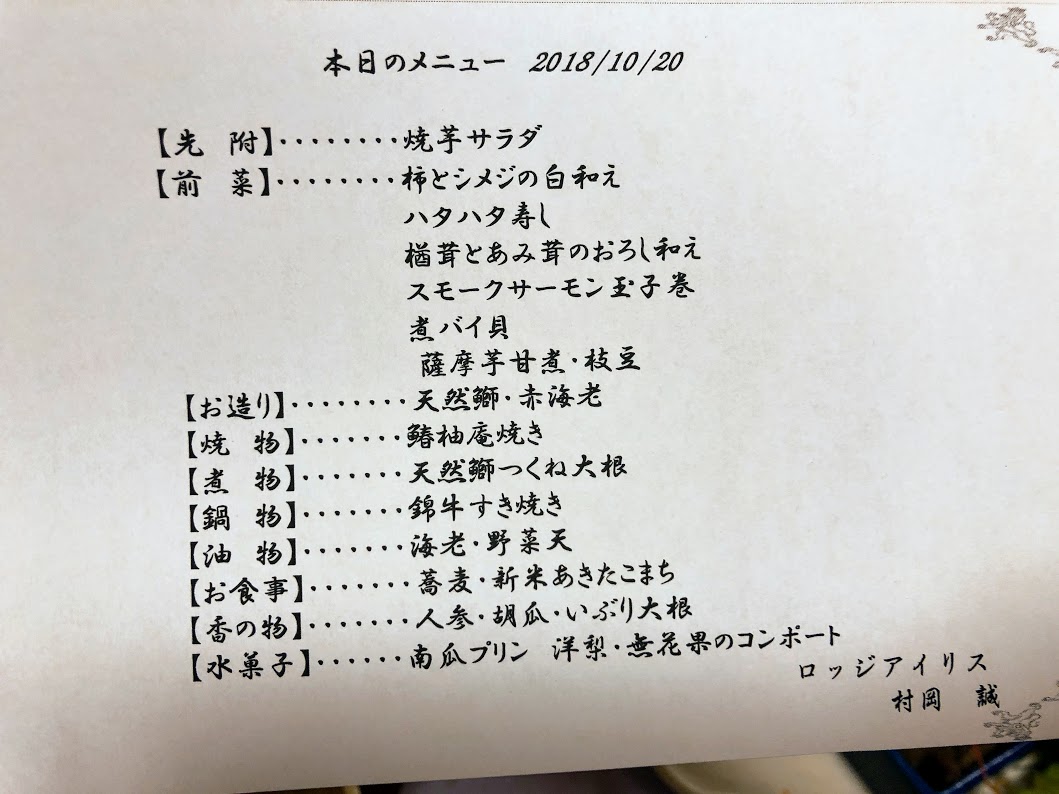 本日のメニュー　2018/10/20
【先　附】········焼芋サラダ
【前　菜】········柿とシメジの白和え
ハタハタ寿し
楢茸とあみ茸のおろし和え
スモークサーモン玉子巻
煮バイ貝
薩摩芋甘煮·枝豆
【お造り】········天然鰤·赤海老
【焼　物】·······鰆柚庵焼き
【煮　物】·······天然鰤つくね大根
【鍋　物】·······錦牛すき焼き
【油　物】·······海老·野菜天
【お食事】·······蕎麦·新米あきたこまち
【香の物】·······人参·胡瓜·いぶり大根
【水菓子】······南瓜プリン　洋梨·無花果のコンポート
ロッジアイリス
村岡　誠